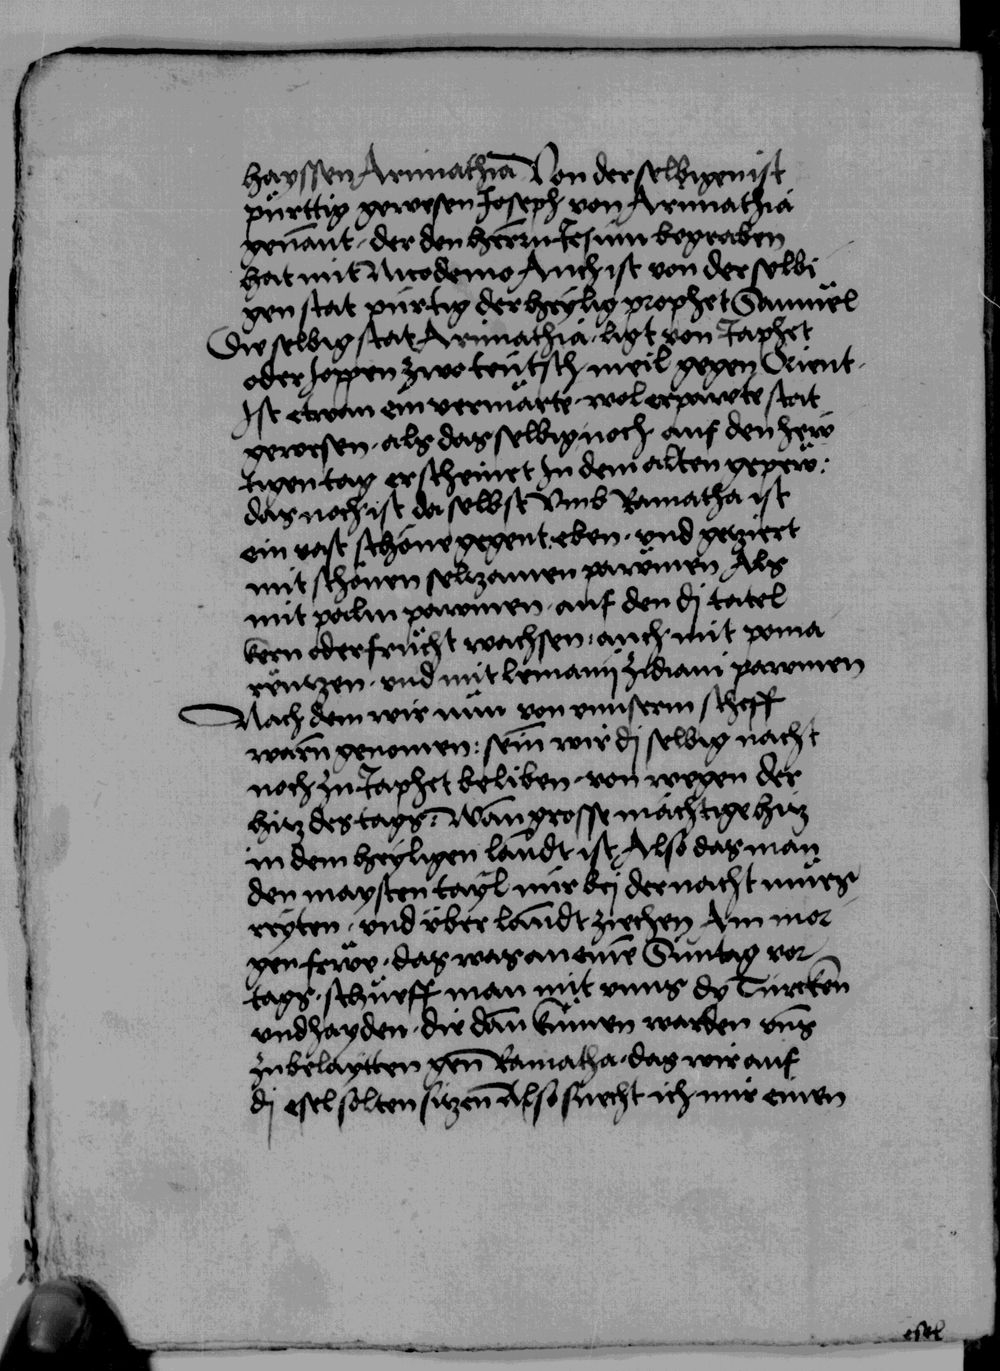 hayssen Arimathia Von der selbigen ist
pürttig gewesen Joseph von Arimathia
genant · der den herrn Jesum begraben
hat mit Nicodemo Auch ist von der selbi
gen stat pürtig der heylig prophet Samuel
Die selbig stat Arimathia · ligt von Japhet
oder Joppen zwo teutsch meil gegen Orient ·
Ist etwan ein vermärte · wol erpawte stat
gewesen · als das selbig noch auf den hew
tigen tag erscheinet In dem alten gepew :
das noch ist da selbst Vmb Ramatha ist
ein vast schöne gegent · eben · vnd geziert
mit schönen seltzamen pawmen Als
mit palm pawmen · auf den dj tatel
kern oder frücht wachsen : auch mit poma
rantzen · vnd mit lemanij pawmen
Nach dem wir nun von vnnserm scheff
warn genomen : sein wir dj selbig nacht
noch zu Japhet beliben · von wegen der
hitz des tags : Wan grosse mächtige hitz
in dem heyligen landt ist Also das man
den maysten tayl nür bej der nacht mües
reyten · vnd über landt ziechen Am mor
gen frwe · das was an einem Suntag vor
tags · schueff man mit vnns dy Türcken
vnd hayden · die dan kumen warden vns
zubelaytten gen Ramatha · das wir auf
dj esel solten sitzen Also suecht ich mir einen
esel